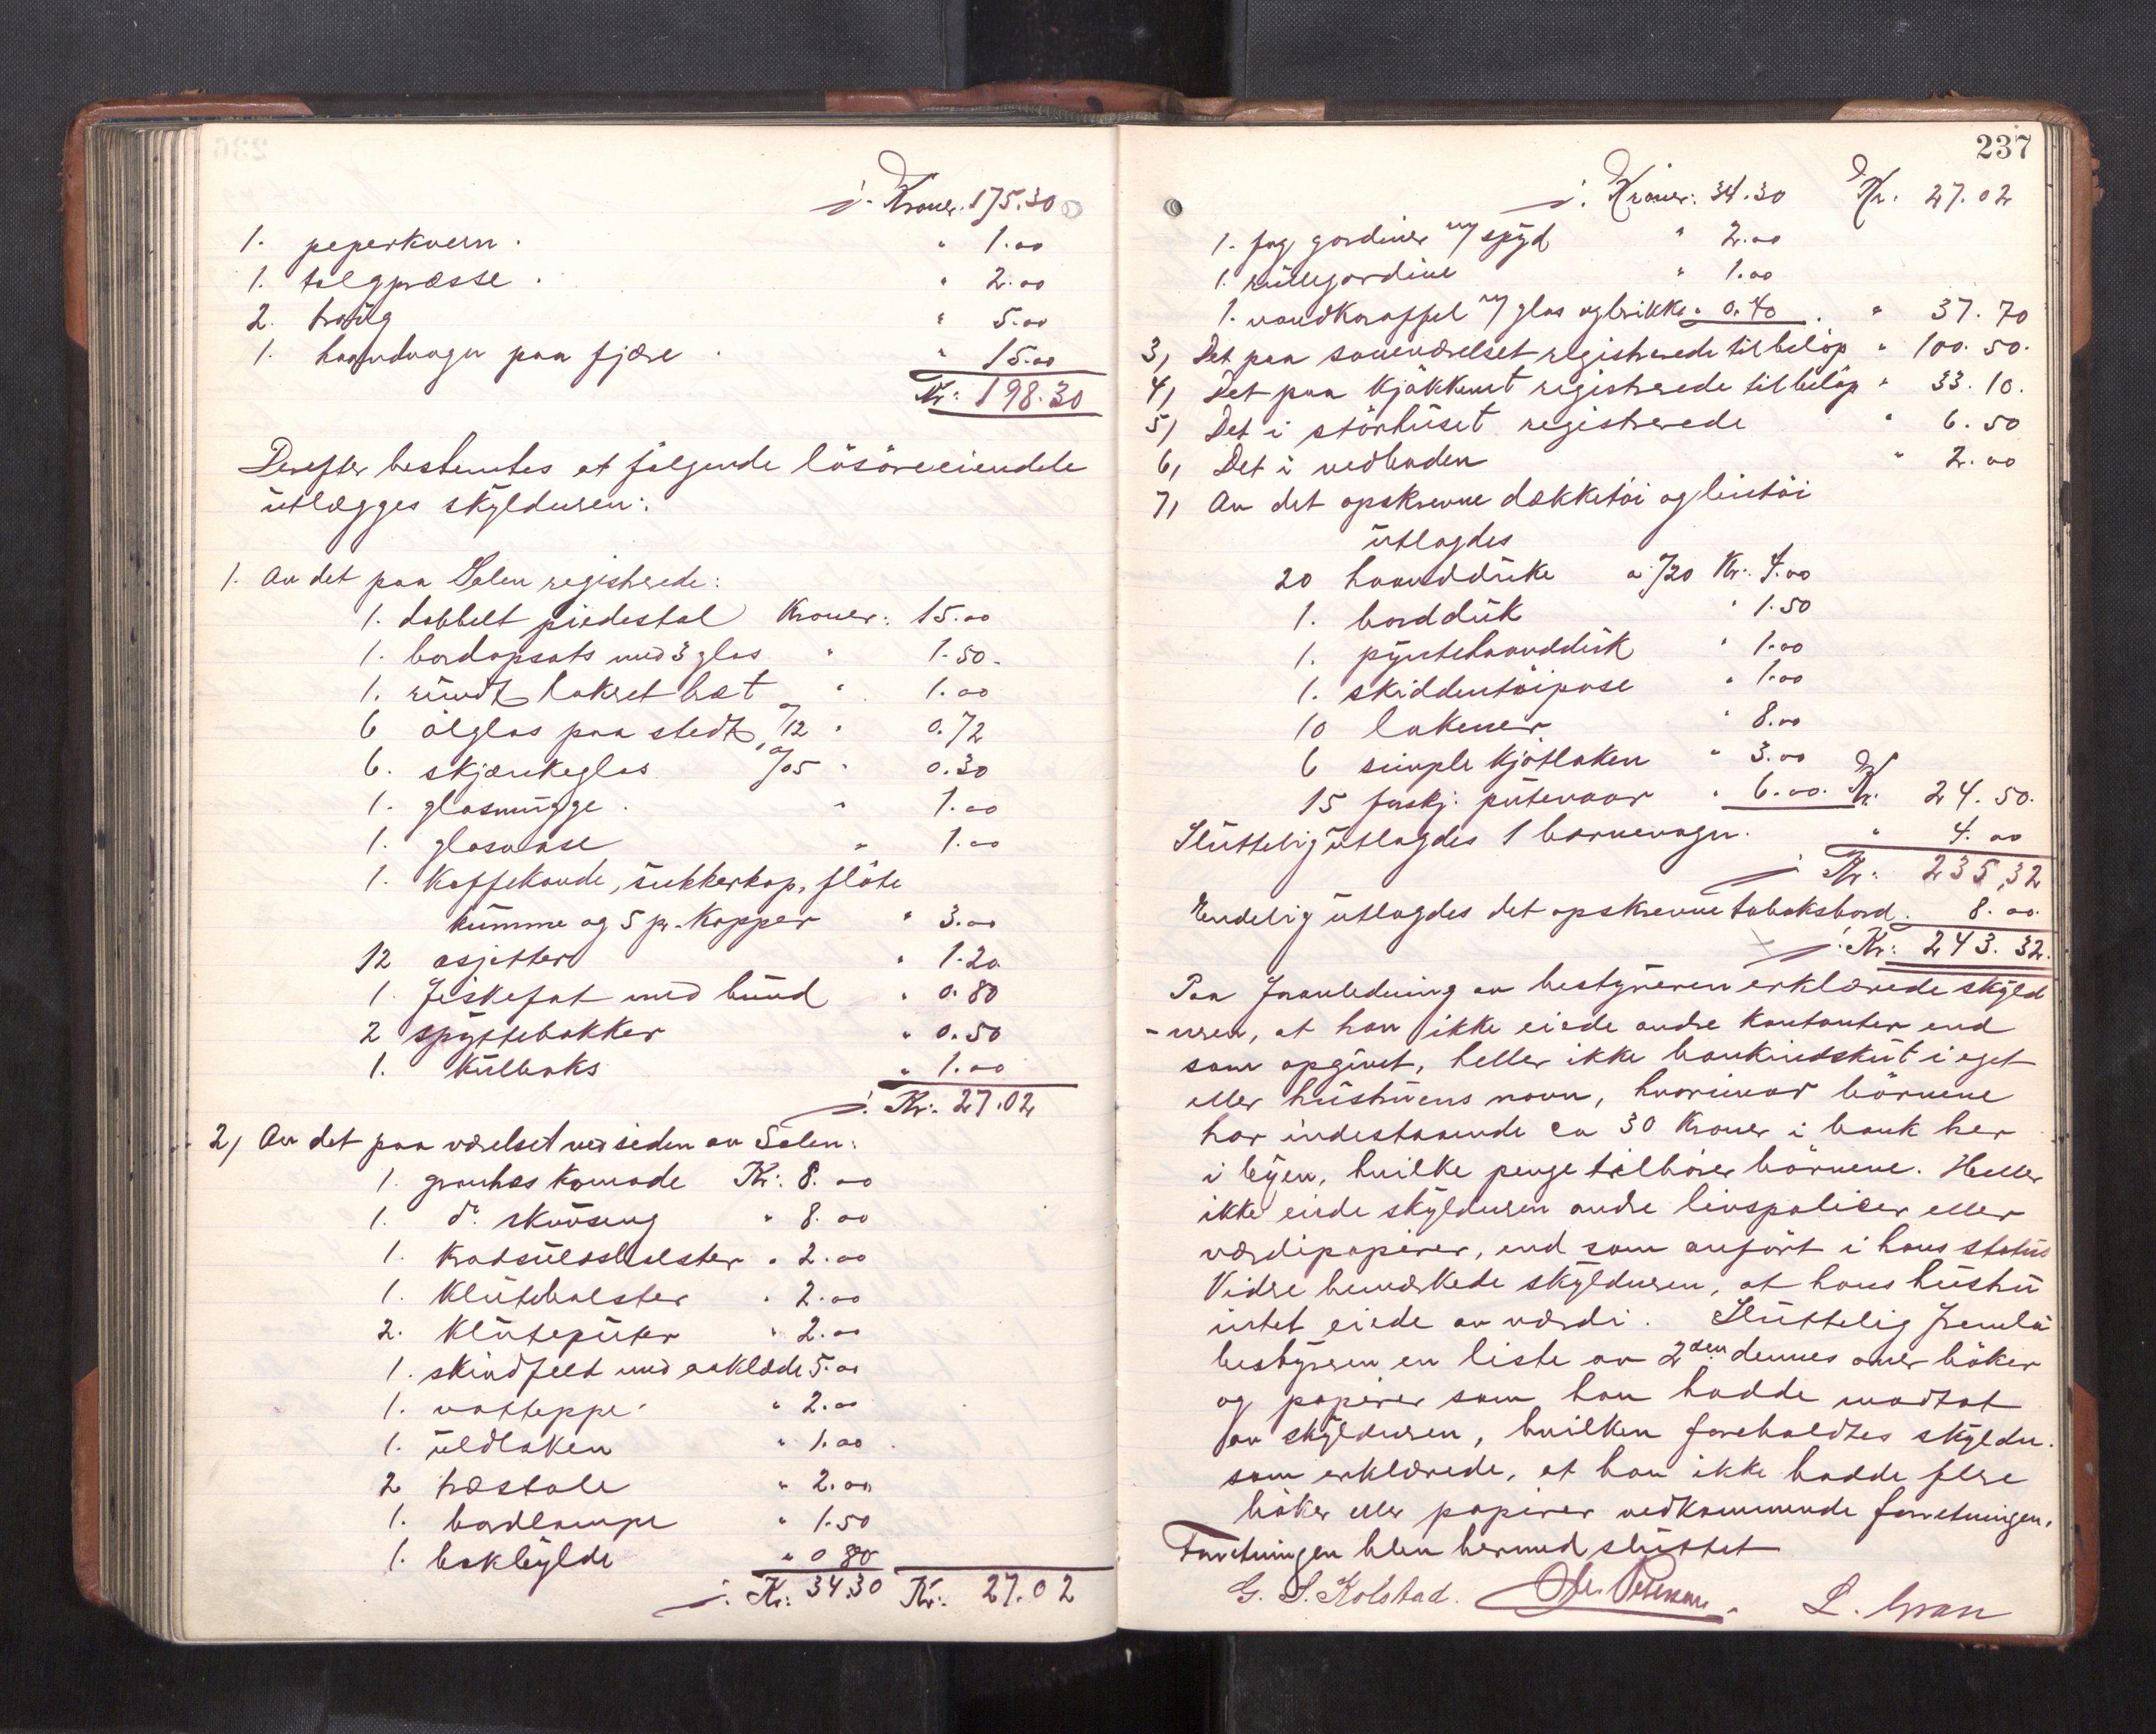 ÷ Kroner. 175.30
1. peperkvern . " 1.00
1. talgpræsse . " 2.00
2. traug " 5.00
1. haandvogn paa fjære . " 15.00
Kr: 198.30
Derefter bestemtes at følgende løsøreeiendele
utlægges skyldneren:
1. Av det paa Salen registrerede:
1. dobbelt piedestal Kroner: 15.00
1. bordopsats med 3 glas " 1.50.
1. rundt lakret bræt " 1.00
6 ølglas paa stedt, a/12 " 0.72
6. skjænkeglas a/05 " 0.30
1. glasmugge . " 1.00
1. glasvase " 1.00
1. Kaffekande, sukkerkop, fløte
kumme og 5 pr. Kopper " 3.00
12 asjetter " 1.20
1. Fiskefat med bund " 0.80
2 spyttebakker " 0.50
1. Kulboks " 1.00
÷ Kr: 27.02
2, Av det paa værelset ved siden av Salen:
1. granhas komode Kr: 8.00
1. do. skuvseng " 8.00
1. " 2.00
1. Klutebolster " 2.00
2. Kluteputer " 2.00
1. skindfeld med aaklæde 5.00
1. vatteppe " 2.00
1. uldlaken " 1.00
2 træstole " 2.00
1. bordlampe " 1.50
1. bokhylde " 0.80
÷ Kr: 34.30 Kr: 27.02
237
÷ Kroner: 34.30 Kr. 27.02
1. fag gardiner m/ spyd " 2.00
1. rullegardine " 1.00
1. vandkaraffel m/ glas og brikke " 0.40 . " 37.70
3, Det paa soveværelset registrerede til beløp " 100.50.
4, Det paa Kjøkkenet registrerede til beløp " 33.10.
5, Det i størhuset registrerede " 6.50
6, Det i vedboden " 2.00
7, Av det opskrevne dækketøi og lintøi
utlagdes
20 haandduke a/20 Kr: 4.00
1. bordduk " 1.50
1. pyntehaandduk " 1.00
1. skiddentøipose " 1.00
10 lakener " 8.00
6 simple Kjøtlaken " 3.00
15 forskj. putevaar " 6.00. Kr. 24.50.
Sluttelig utlagdes 1 barnevogn. " 4.00
÷ Kr: 235,32
Endelig utlagdes det opskrevne taboksbord. 8.00.
÷ Kr: 243.32.
Paa foranledning av bestyreren erklærede skyld
-neren, at han ikke eiede andre kontanter end
som opgivet, heller ikke bankindskut i eget
eller hustruens navn, hvorimot børnene
har indestaaende ca 30 Kroner i bank her
i byen, hvilke penge tilhører børnene. Heller
ikke eiede skyldneren andre livspoliser eller
værdipapirer, end som anført i hans status
Vidre bemærkede skyldneren, at hans hustru
intet eiede av værdi. Sluttelig fremla
bestyreren en liste av 2den dennes over bøker
og papirer som han hadde modtat
av skyldneren, hvilken foreholdtes skyldn.
som erklærede, at han ikke hadde flere
bøker eller papirer vedkommende forretningen.
Forretningen blev hermed sluttet
G. S. Kolstad. L. Gran